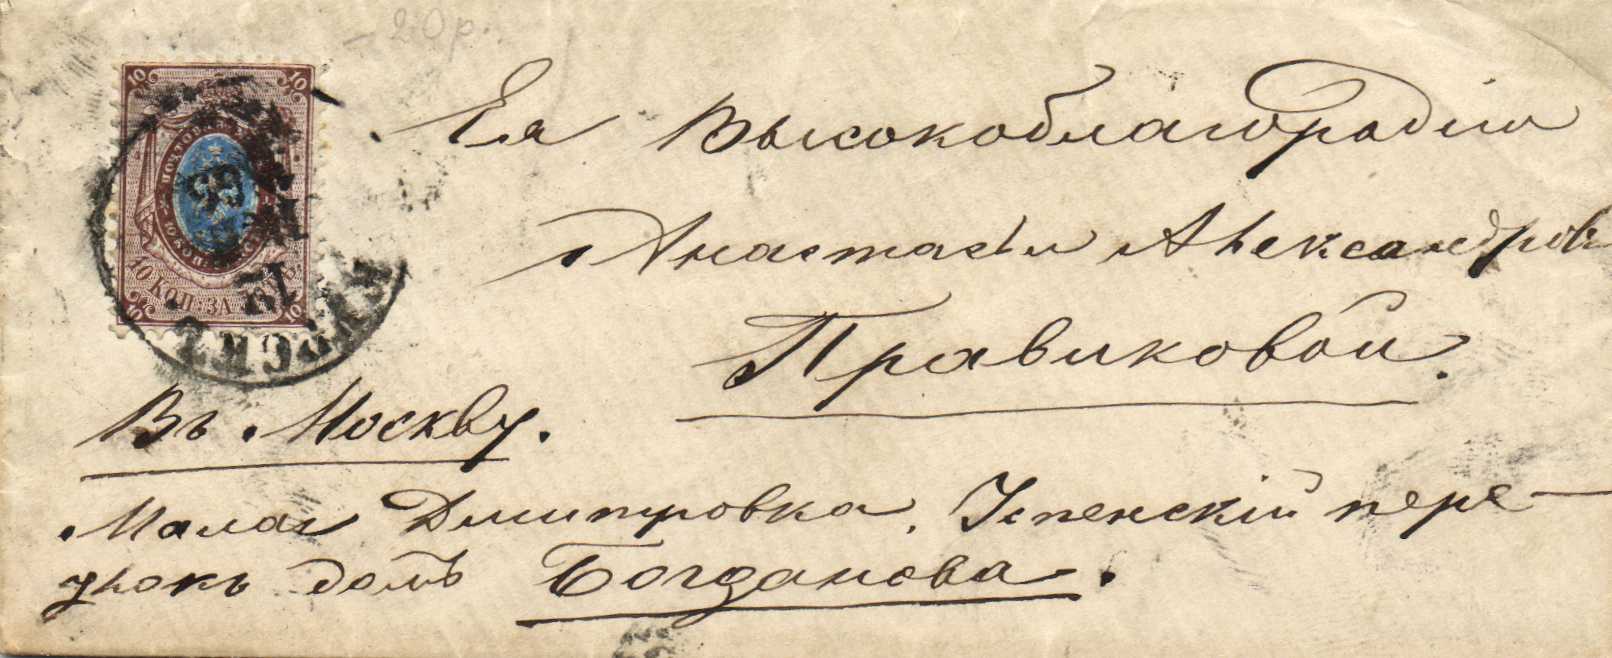 – 20 р.
10 10
ПОЧТОВАЯ
10 КОП. ЗА ЛОТЪ
10 10
Ея Высокоблагородію
Анастасьи Александров
Правиковой.
Въ Москву.
Малая Дмитровка, Успенскій пере-
улокъ домъ Богданова.